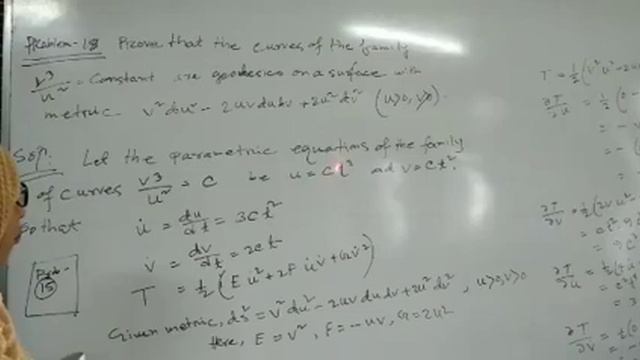 Problem-18 Prove that the curves of the family
v³/u² = Constant are geodesics on a surface with
metric v²du² - 2uv du dv + 2u²dv² (u>0, v>0).
Sol^n: Let the parametric equations of the family
of curves v³/u² = c be u = ct³ ad v = ct².
So that u̇ = du/dt = 3ct²
v̇ = dv/dt = 2ct
T = ½(E u̇² + 2F u̇v̇ + G v̇²)
Given metric, ds² = v²du² - 2uv du dv + 2u²dv², u>0, v>0
Here, E = v², F = -uv, G = 2u²
15
T = ½(v²u̇² - 2u
∂T/∂u = ½(0 -
∂T/∂v = ½(2v u̇²
∂T/∂u̇ = ½(
∂T/∂v̇ = ½(0